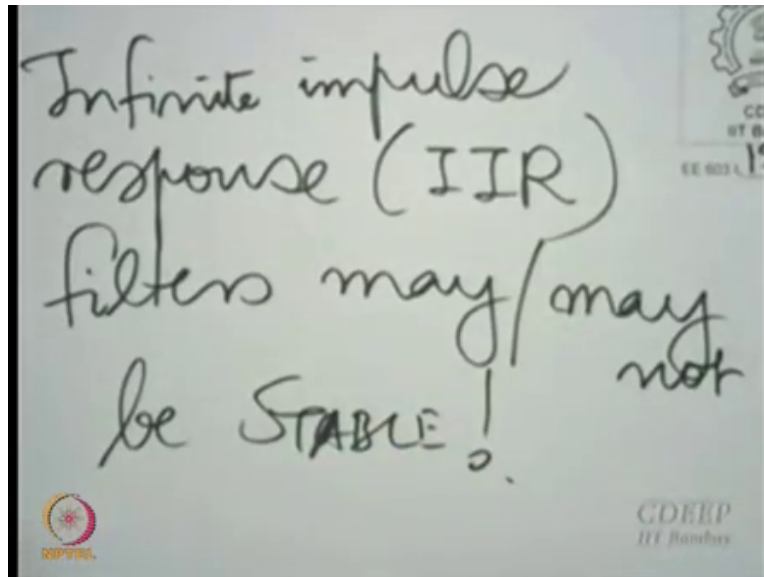 Infinite impulse
response (IIR)
filters may/may
not
be STABLE!
CDEEP
IIT Bombay
NPTEL
EE 603 L